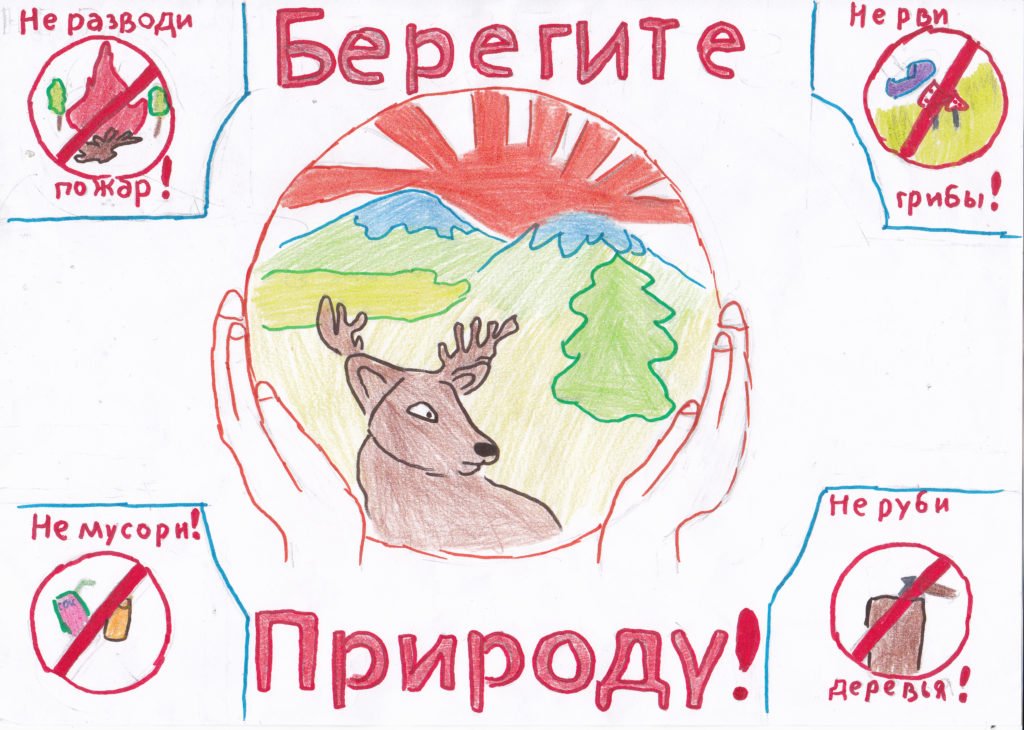 Не разводи
пожар!
Берегите
Не рви
грибы!
Не мусори!
сок
Природу!
Не руби
деревья!